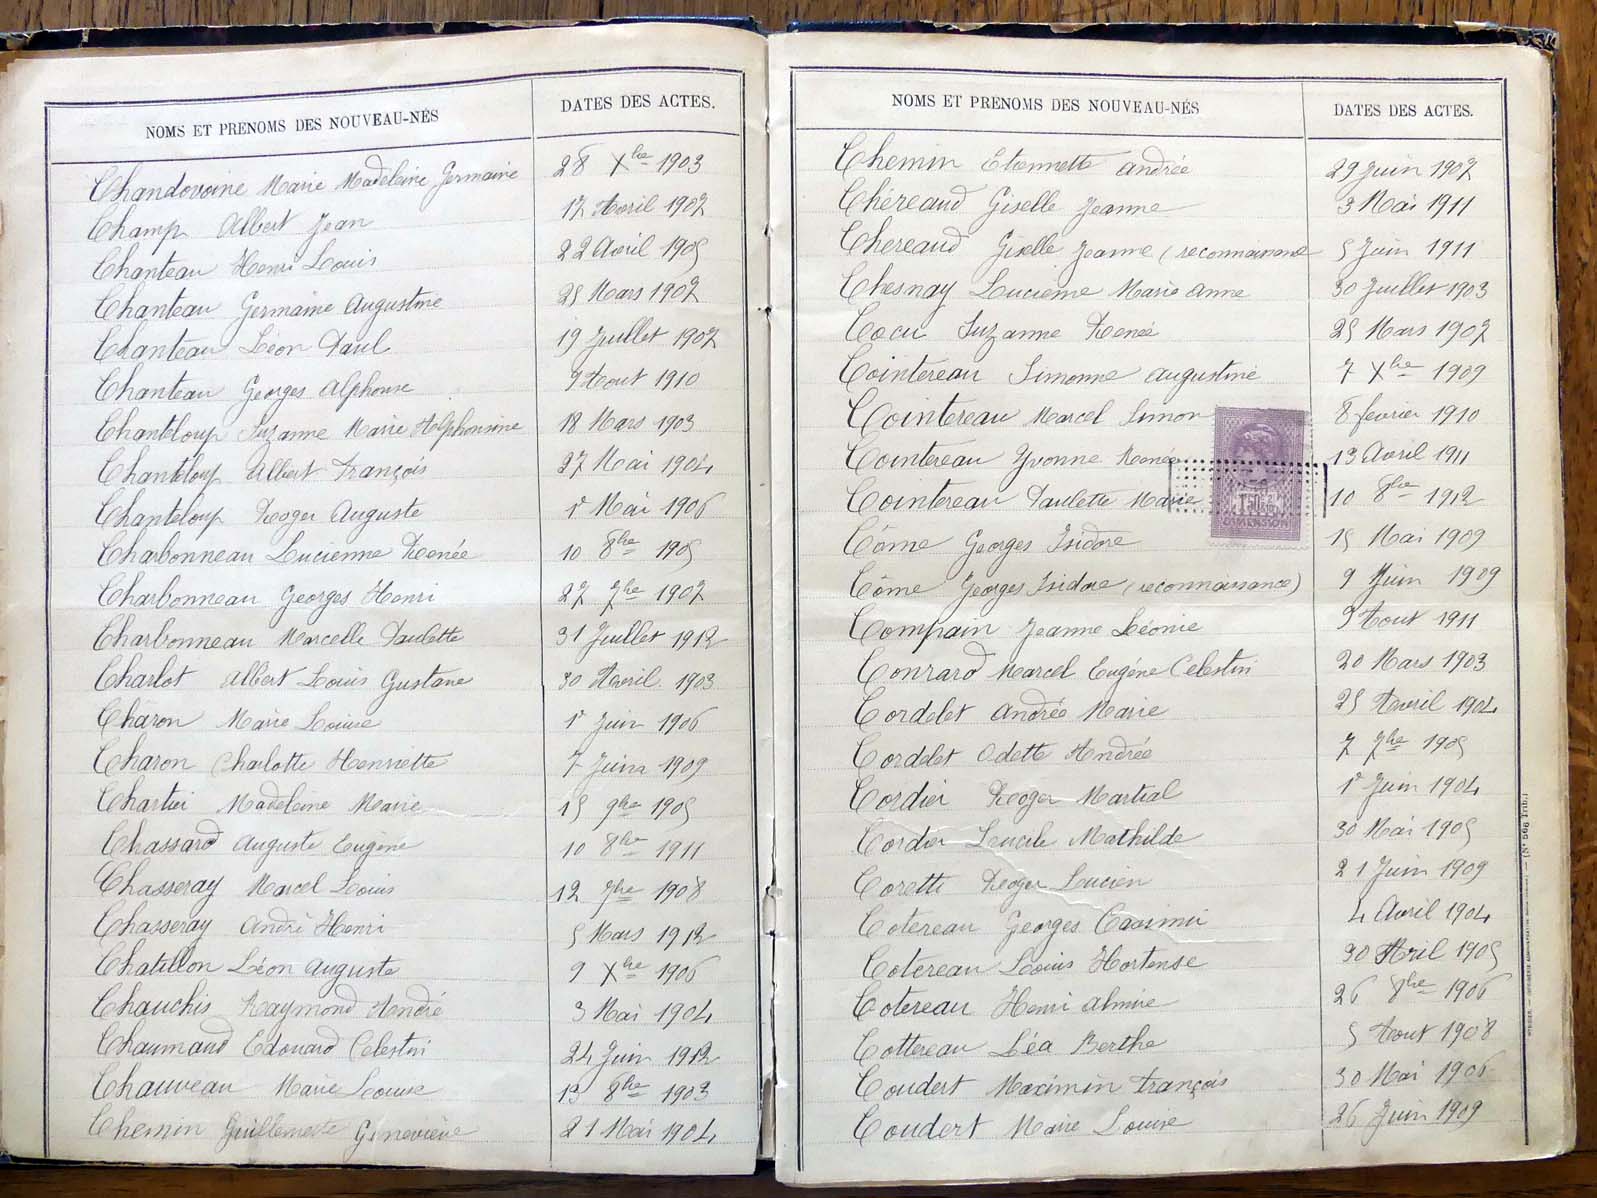 NOMS ET PRENOMS DES NOUVEAU-NÉS DATES DES ACTES.
Chandovoine Marie Madeleine Germaine 28 Xbre 1903
Champ Albert Jean 12 Avril 1907
Chanteau Henri Louis 22 Avril 1905
Chanteau Germaine Augustine 25 Mars 1907
Chanteau Léon Paul 19 Juillet 1907
Chanteau Georges Alphonse 9 Aout 1910
Chanteloup Suzanne Marie Alphonsine 18 Mars 1903
Chanteloup Albert François 27 Mai 1904
Chanteloup Roger Auguste 1r Mai 1906
Charbonneau Lucienne Renée 10 8bre 1905
Charbonneau Georges Henri 27 7bre 1907
Charbonneau Marcelle Paulette 31 Juillet 1912
Charlot Albert Louis Gustave 30 Avril 1903
Charon Marie Louise 1r Juin 1906
Charon Charlotte Henriette 7 Juin 1909
Chartier Madeleine Marie 15 9bre 1905
Chassard Auguste Eugène 10 8bre 1911
Chasseray Marcel Louis 12 7bre 1908
Chasseray André Henri 5 Mars 1912
Chatillon Léon Auguste 9 Xbre 1906
Chauchis Raymond André 3 Mai 1904
Chaumand Edouard Celestin 24 Juin 1912
Chauveau Marie Louise 13 8bre 1903
Chemin Guillemette Geneviève 21 Mai 1904
NOMS ET PRENOMS DES NOUVEAU-NÉS DATES DES ACTES.
Chemin Etiennette Andrée 29 Juin 1907
Chéreaud Giselle Jeanne 3 Mai 1911
Chereaud Giselle Jeanne (reconnaissance 5 Juin 1911
Chesnay Lucienne Marie Anne 30 Juillet 1903
Cocu Suzanne Renée 25 Mars 1907
Cointereau Simonne Augustine 7 Xbre 1909
Cointereau Marcel Simon 8 fevrier 1910
Cointereau Yvonne Renée 13 Avril 1911
Cointereau Paulette Marie 10 8bre 1912
DIMENSION
Côme Georges Isidore 15 Mai 1909
Côme Georges Isidore (reconnaissance) 9 Juin 1909
Compain Jeanne Léonie 9 Aout 1911
Conrard Marcel Eugéne Celestin 20 Mars 1903
Cordelet Andrée Marie 25 Avril 1904
Cordelet Odette Andrée 7 7bre 1905
Cordier Roger Martial 1r Juin 1904
Cordier Lucile Mathilde 30 Mai 1905
Coretti Roger Lucien 21 Juin 1909
Cotereau Georges Casimir 4 Avril 1904
Cotereau Louis Hortense 30 Avril 1905
Cotereau Henri Almire 26 8bre 1906
Cottereau Léa Berthe 5 Aout 1908
Coudert Maximin François 30 Mai 1906
Coudert Marie Louise 26 Juin 1909
(N° 566 Trib.)